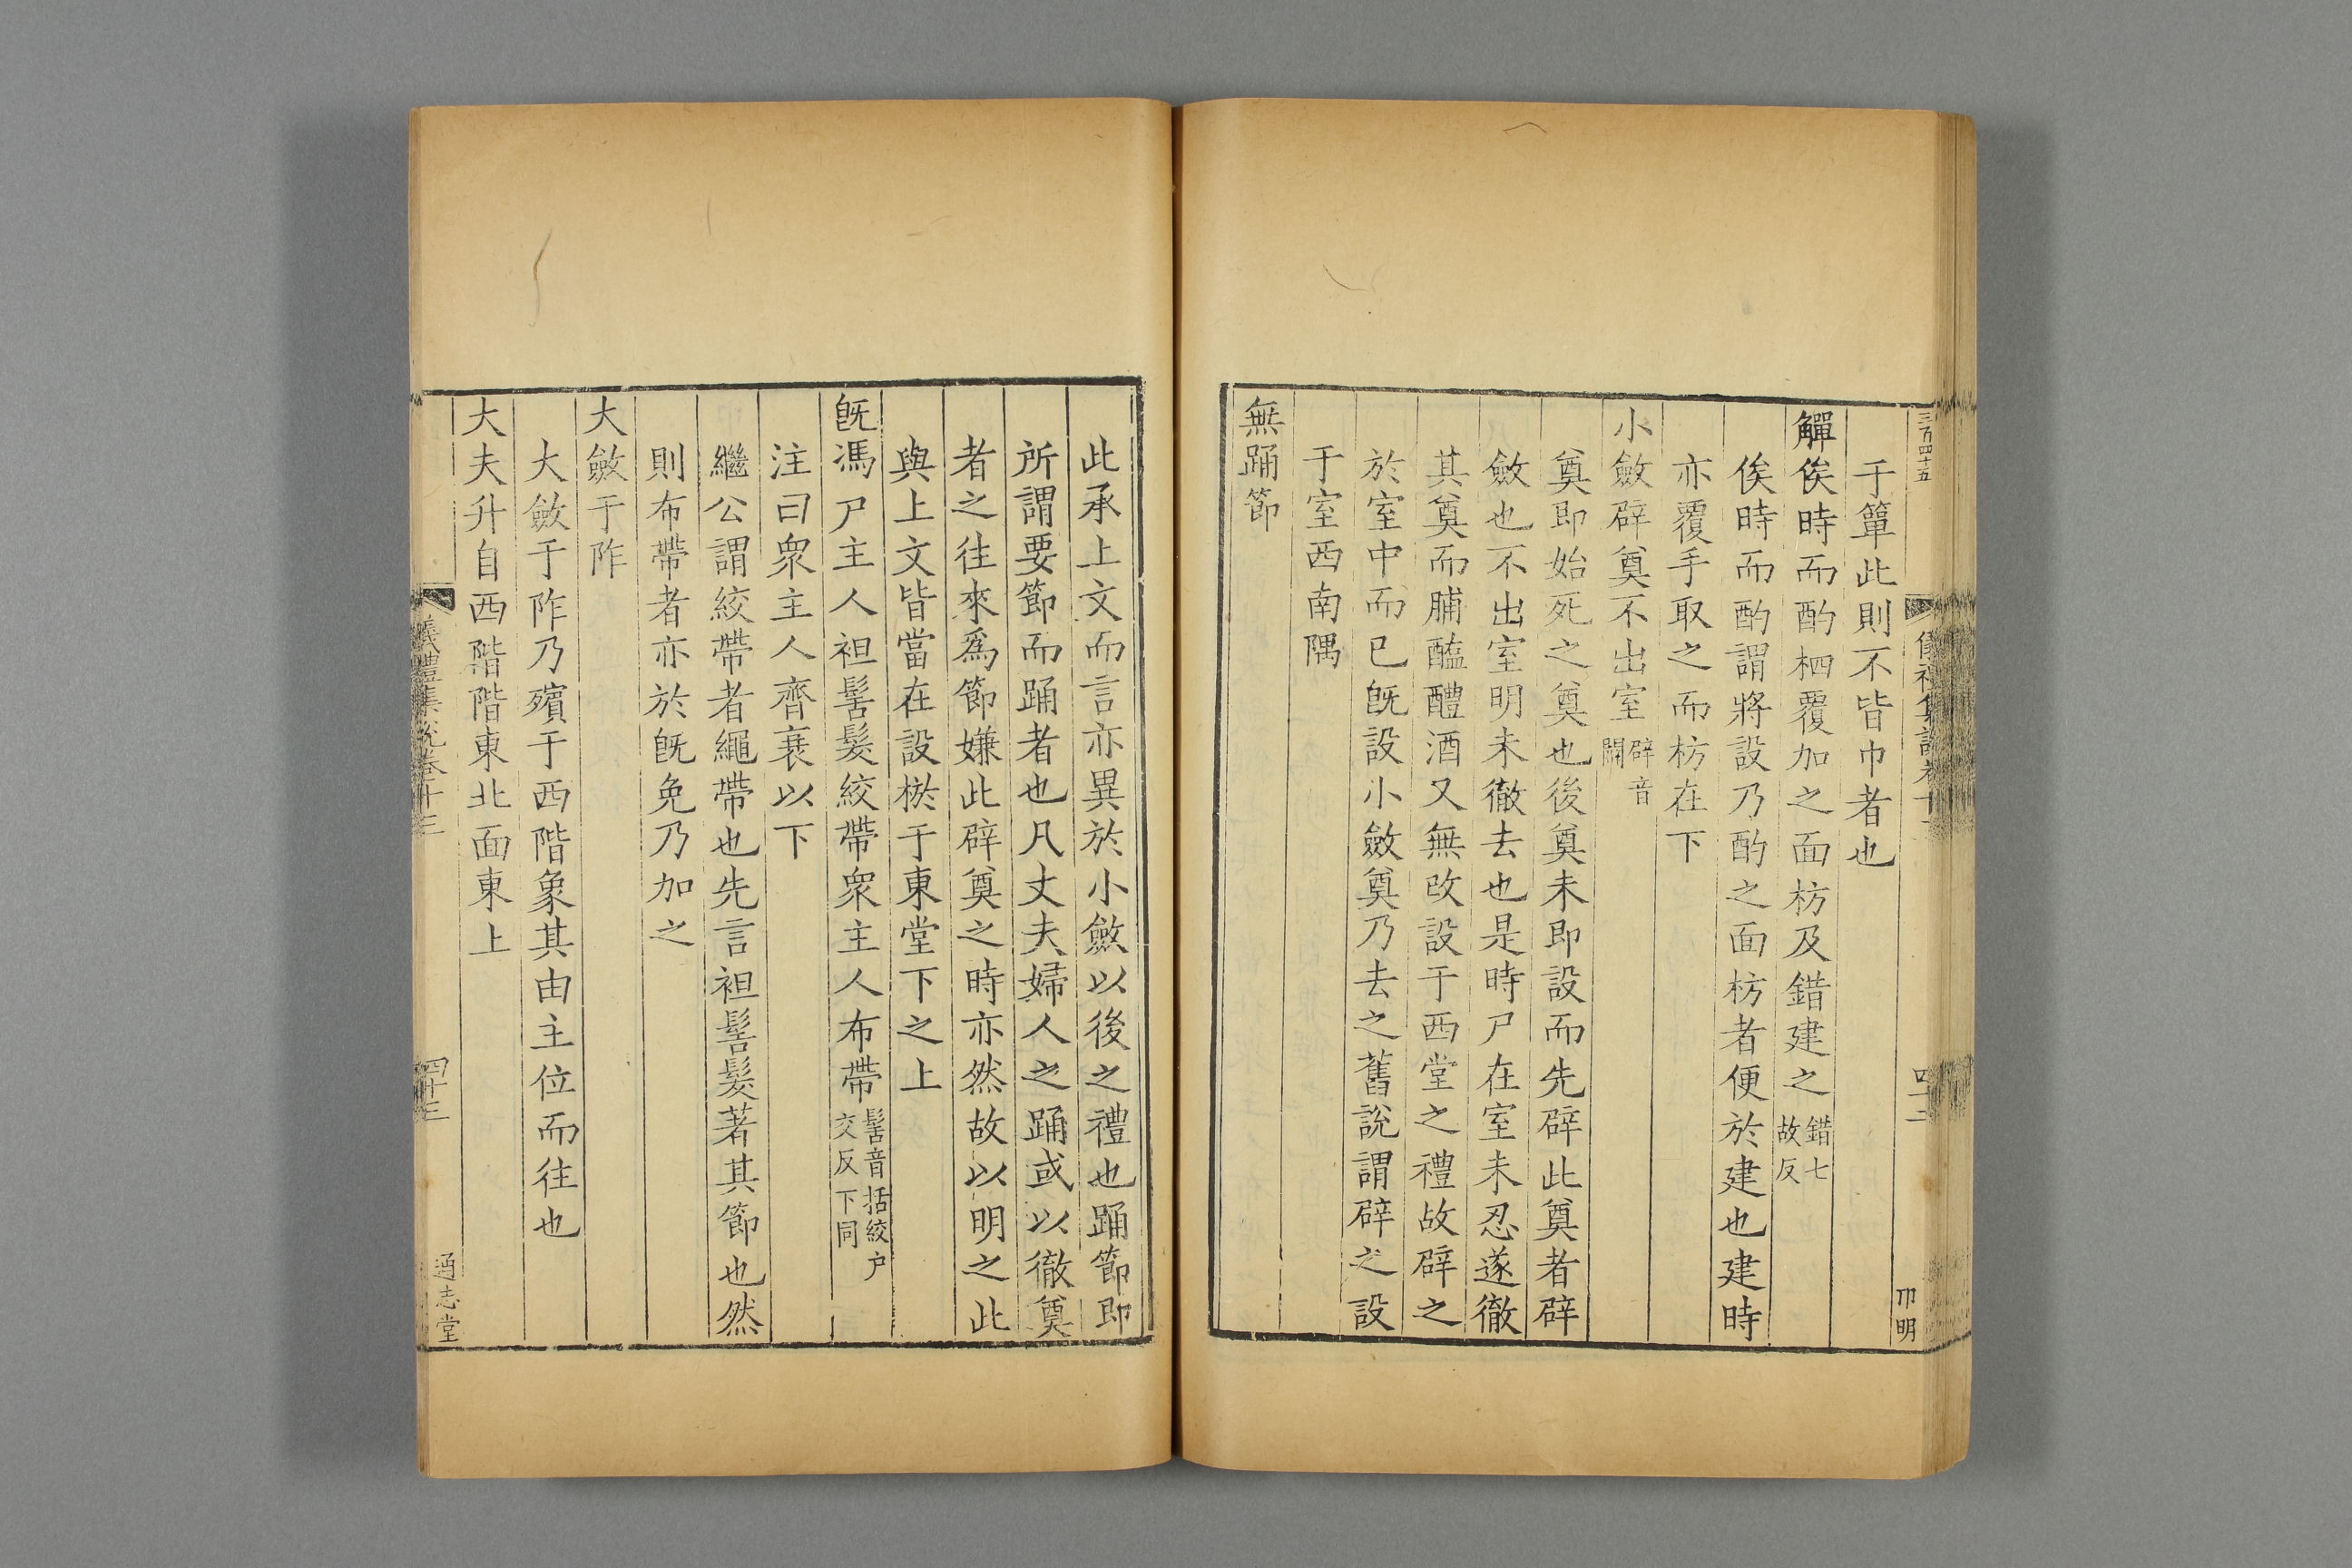 三百四十五
儀禮集說卷十
四十二
卬明
于簞此則不皆巾者也
觶俟時而酌柶覆加之面枋及錯建之錯七故反
俟時而酌謂將設乃酌之面枋者便於建也建時
亦覆手取之而枋在下
小斂辟奠不出室辟音闢
奠即始死之奠也後奠未即設而先辟此奠者辟
斂也不出室明未徹去也是時尸在室未忍遂徹
其奠而脯醢醴酒又無改設于西堂之禮故辟之
於室中而已旣設小斂奠乃去之舊說謂辟之設
于室西南隅
無踊節
此承上文而言亦異於小斂以後之禮也踊節即
所謂要節而踊者也凡丈夫婦人之踊或以徹奠
者之往來爲節嫌此辟奠之時亦然故以明之此
與上文皆當在設棜于東堂下之上
旣馮尸主人袒髺髮絞帶衆主人布帶髺音括絞户交反下同
注曰衆主人齊衰以下
繼公謂絞帶者繩帶也先言袒髺髮著其節也然
則布帶者亦於旣免乃加之
大斂于阼
大斂于阼乃殯于西階象其由主位而往也
大夫升自西階階東北面東上
儀禮集說卷十三
四十三
通志堂